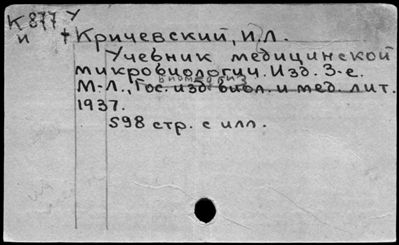 К 877 У
и † Кричевский, И.Л.
Учебник медицинской
микробиологии. Изд. 3-е.
М.-Л., Гос. изд. биол. и мед. лит.
1937.
598 стр. с илл.